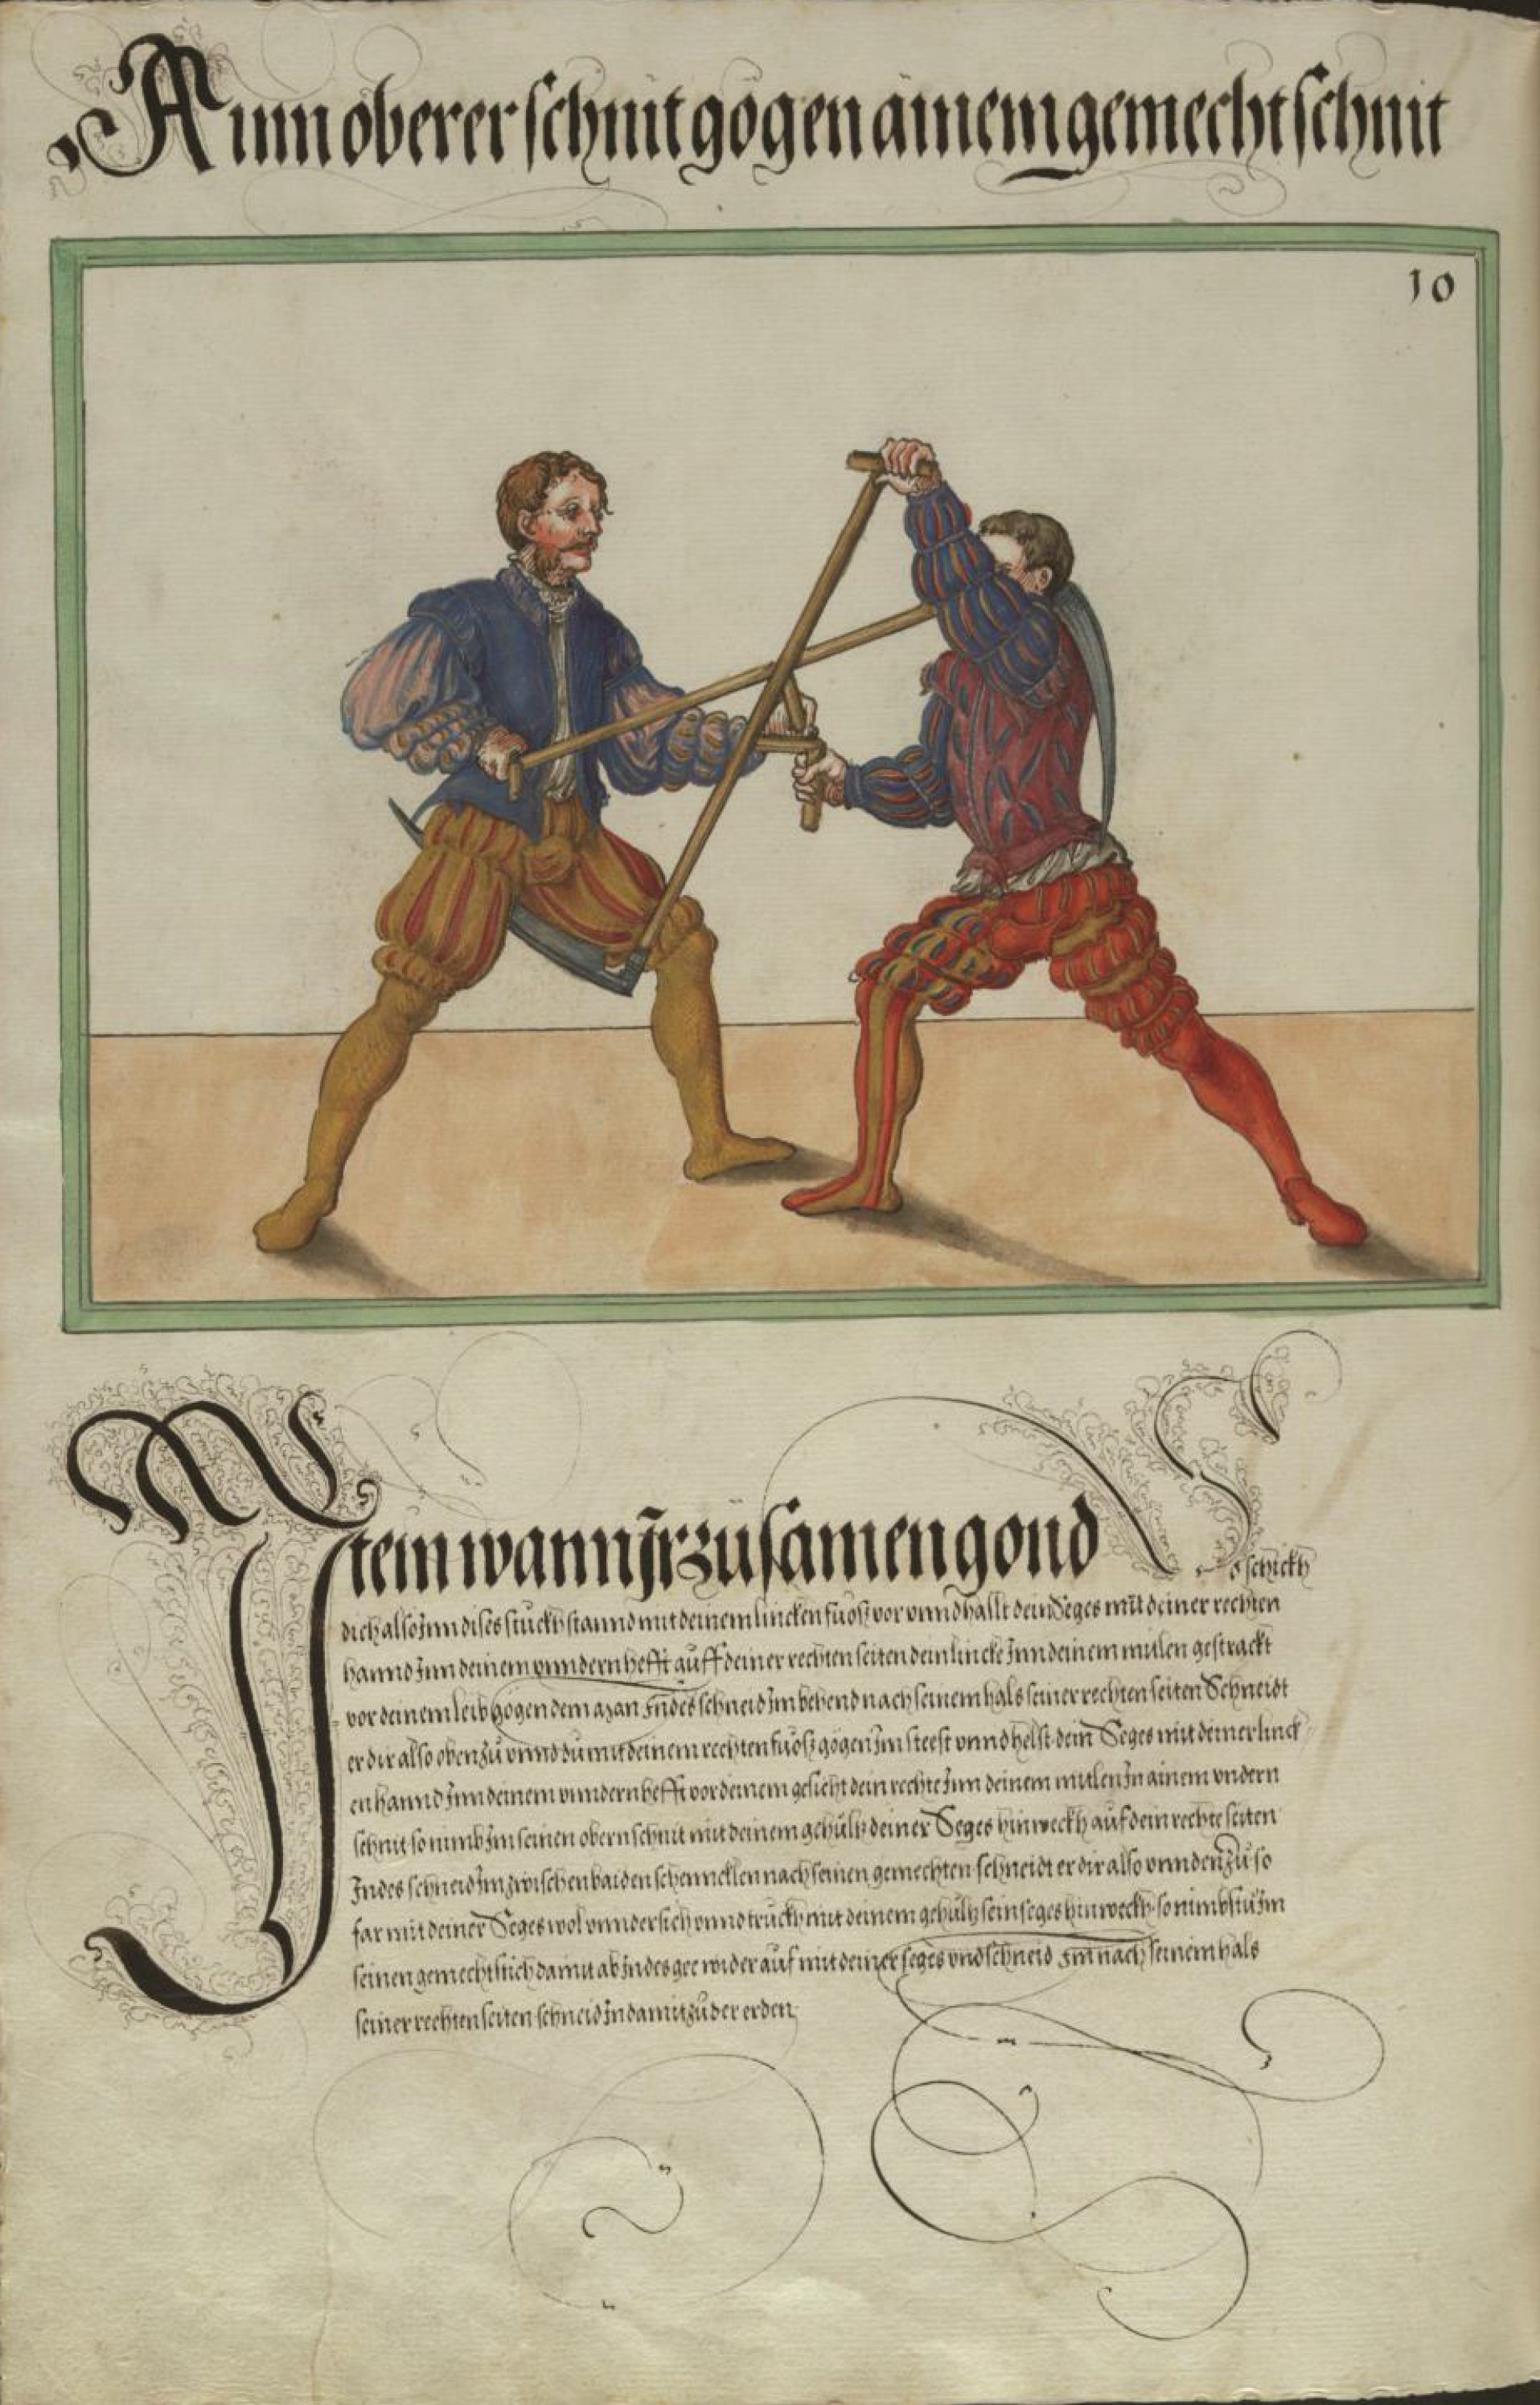 Ainn oberer schnit gögen ainem gemecht schnit
10
Item wann Ir zu samen gond so schickh
dich also Inn dises stuckh stannd mit deinem lincken fuoß vor vnnd hallt dein Seges mit deiner rechten
hannd Inn deinem vnndern hefft auff deiner rechten seiten dein lincke Inn deinem mitlen gestrackt
vor deinem leib gögen dem man Indes schneid Im behend nach seinem hals seiner rechten seiten Schneidt
er dir also oben zu vnnd du mit deinem rechten fuoß gögen Im steest vnnd helst dein Seges mit deiner linck
en hannd Inn deinem vnndern hefft vor deinem gesicht dein rechte Inn deinem mitlen In ainem vndern
schnit so nimb Im seinen obern schnit mit deinem gehülz deiner Seges hinweckh auf dein rechte seiten
Indes schneid Im zwischen baiden schenncklen nach seinen gemechten schneidt er dir also vnnden zu so
far mit deiner Seges wol vnndersich vnnd truckh mit deinem gehülz sein seges hinweckh so nimbstu Im
seinen gemecht stich damit ab Indes gee wider auf mit deiner seges vnd schneid Im nach seinem hals
seiner rechten seiten schneid In damit zu der erden